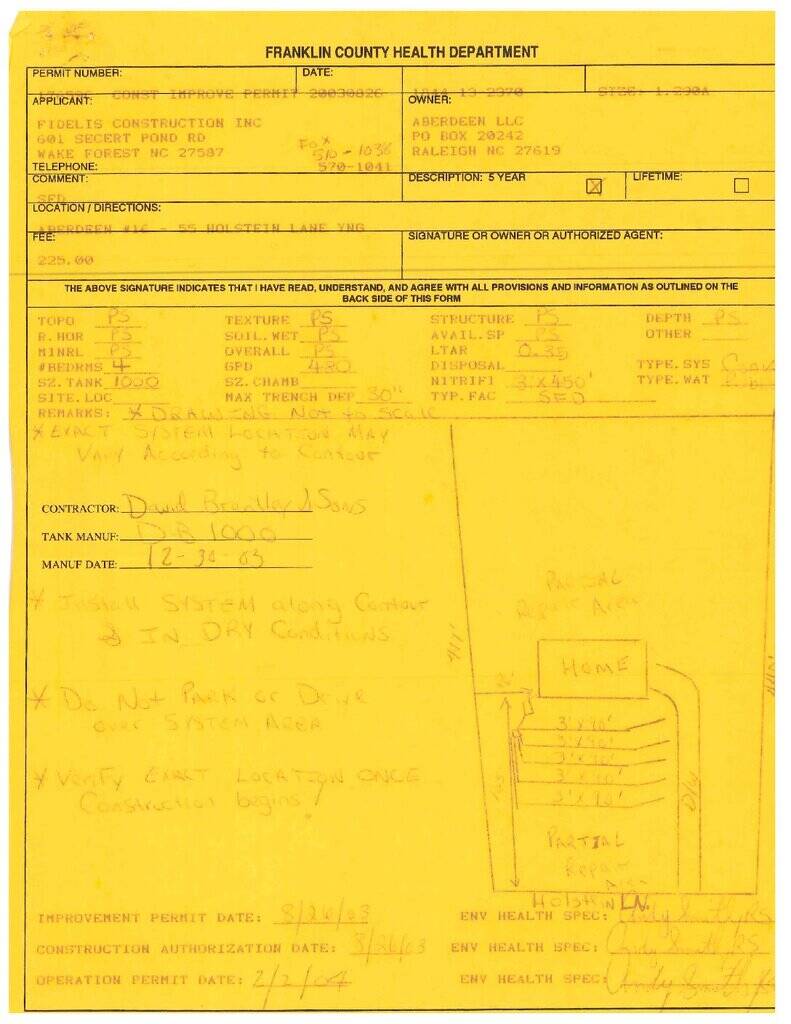 FRANKLIN COUNTY HEALTH DEPARTMENT
PERMIT NUMBER: DATE:
CONST IMPROVE PERMIT 20030826 1844 13 2370 SIZE: 1.290A
APPLICANT: OWNER:
FIDELIS CONSTRUCTION INC ABERDEEN LLC
601 SECERT POND RD Fax PO BOX 20242
WAKE FOREST NC 27587 570-1038 RALEIGH NC 27619
TELEPHONE: 570-1041
COMMENT: DESCRIPTION: 5 YEAR LIFETIME:
SFD
LOCATION / DIRECTIONS:
ABERDEEN #16 - 55 HOLSTEIN LANE YNG
FEE: SIGNATURE OR OWNER OR AUTHORIZED AGENT:
225.00
THE ABOVE SIGNATURE INDICATES THAT I HAVE READ, UNDERSTAND, AND AGREE WITH ALL PROVISIONS AND INFORMATION AS OUTLINED ON THE
BACK SIDE OF THIS FORM
TOPO PS TEXTURE PS STRUCTURE PS DEPTH PS
R.HOR PS SOIL.WET PS AVAIL.SP PS OTHER
MINRL PS OVERALL PS LTAR 0.35
#BEDRMS 4 GPD 480 DISPOSAL TYPE.SYS
SZ.TANK 1000 SZ.CHAMB NITRIFI 3'X450' TYPE.WAT
SITE.LOC MAX TRENCH DEP 30" TYP.FAC SFD
REMARKS: * DRAWING Not to SCALE
* EXACT SYSTEM LOCATION MAY
VARY According to Contour
CONTRACTOR: David Brantley & Sons
TANK MANUF: D-B 1000
MANUF DATE: 12-30-03
* Install SYSTEM along Contour
& IN DRY Conditions
* Do Not PARK or Drive
over SYSTEM AREA
* Verify EXACT LOCATION ONCE
Construction begins!
PARTIAL
Repair Area
HOME
3'X90'
3'X90'
3'X90'
3'X90'
3'X90'
D/W
PARTIAL
Repair
Area
HOLSTEIN LN.
IMPROVEMENT PERMIT DATE: 8/26/03 ENV HEALTH SPEC: Andy Smith, RS
CONSTRUCTION AUTHORIZATION DATE: 8/26/03 ENV HEALTH SPEC: Andy Smith, RS
OPERATION PERMIT DATE: 2/2/04 ENV HEALTH SPEC: Andy Smith, RS